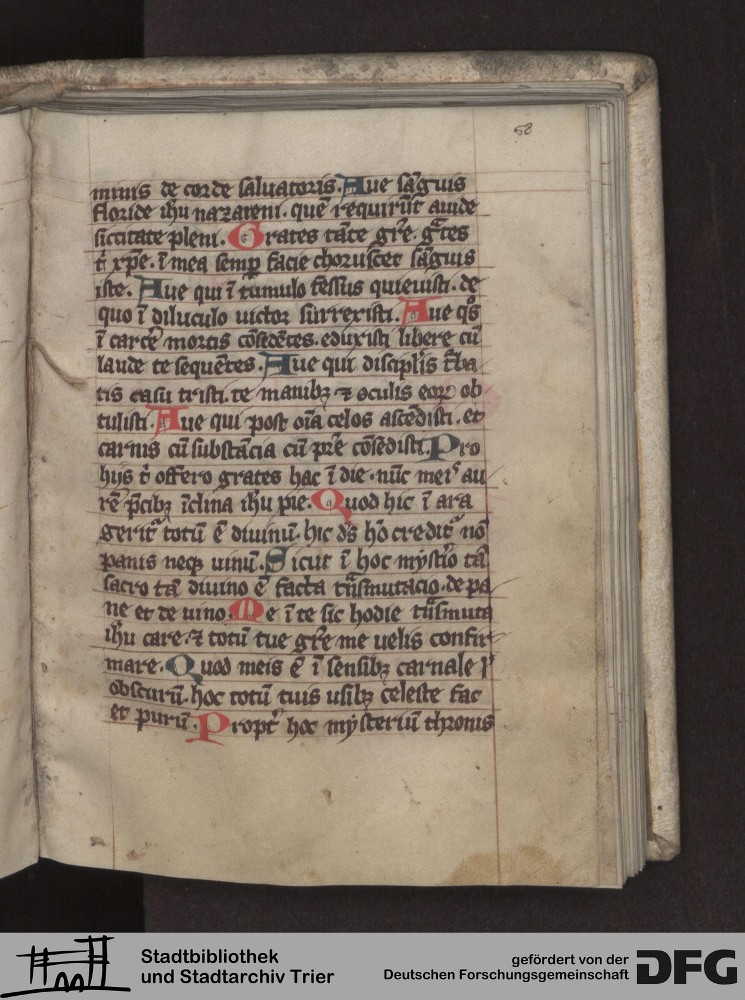 58
minis de corde saluatoris. Aue sāguis
floride ihu nazareni. quē requirūt auide
siccitate pleni. Grates tāte gre. grates
t xpe. ī mea semp facie choruscet sāguis
iste. Aue qui ī tumulo fessus quieuisti. de
quo ī diluculo uictor surrexisti. Aue qs
ī carce mortis cōsedētes. eduxisti libere cū
laude te sequētes. Aue qui disciplis tba
tis casu tristi. te manibꝫ ⁊ oculis eoꝝ ob
tulisti. Aue qui post oīa celos ascēdisti. et
carnis cū substācia cū pre cōsedisti. Pro
hijs t offero grates hac ī die. nūc mei au
rē pcibꝫ īclina ihu pie. Quod hic ī ara
gerit totū ē diuinū. hic ds hō credit nō
panis neqꝫ uinū. Sicut ī hoc mystio tā
sacro tā diuino ē facta tnsmutacio. de pa
ne et de uino. Me ī te sic hodie tnsmuta
ihu care. ⁊ totū tue gre me uelis confir
mare. Quod meis ē ī sensibꝫ carnale ł
obscurū. hoc totū tuis usibꝫ celeste fac
et purū. Propt hoc mysteriū thronis
Stadtbibliothek
und Stadtarchiv Trier
gefördert von der
Deutschen Forschungsgemeinschaft
DFG